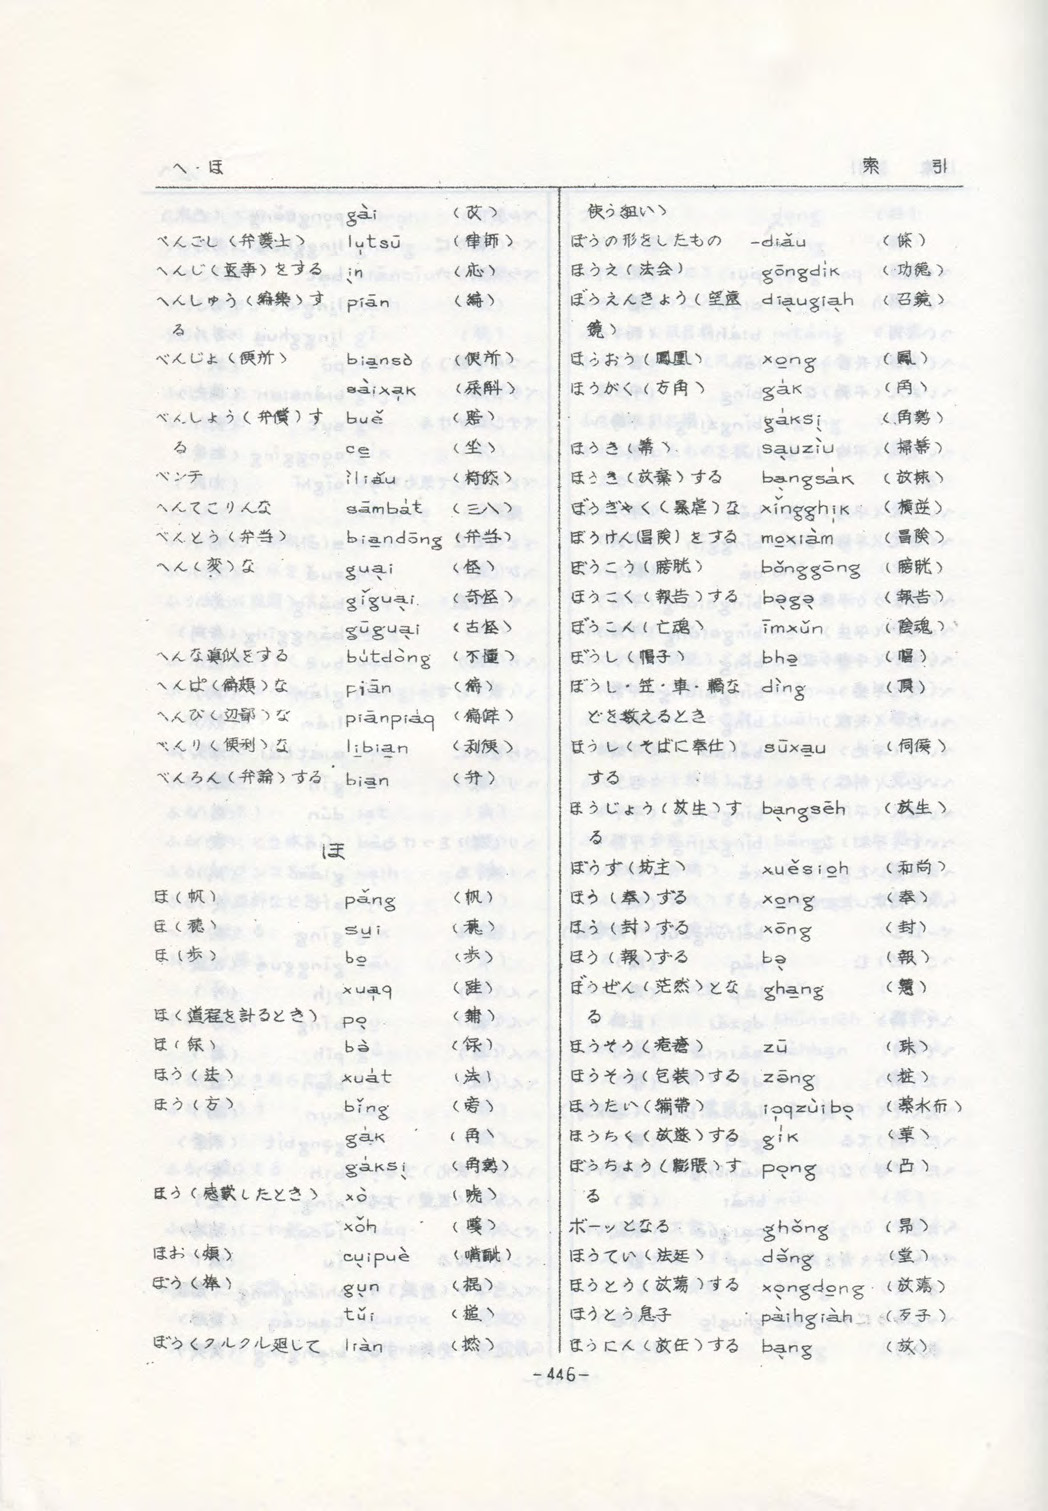 へ・ほ
索 引
gài (改)
べんごし(弁護士) lu̩tsū (律師)
へんじ(返事)をする i̩n (応)
へんしゅう(編集)す piān (編)
る
べんじょ(便所) bia̲nsò (便所)
sàixa̩k (屎斛)
べんしょう(弁償)す buě (賠)
る ce̲ (坐)
ベンチ
へんてこりんな sāmba̍t (三八)
べんとう(弁当) bia̲ndōng (弁当)
へん(変)な gua̩i (怪)
gǐgua̩i (奇怪)
gūgua̩i (古怪)
へんな真似をする bu̍tdòng (不懂)
へんぱ(偏頗)な piān (偏)
へんぴ(辺鄙)な piānpia̍q (偏僻)
べんり(便利)な li̲bia̲n (利便)
べんろん(弁論)する bia̲n (弁)
ほ
ほ(帆) pǎng (帆)
ほ(穂) su̲i (穂)
ほ(歩) bo̲ (歩)
xua̩q
ほ(道程を計るとき) po̩
ほ(保) bà (保)
ほう(法) xua̍t (法)
ほう(方) bǐng (旁)
ga̍k (角)
ga̍ksi̩ (角勢)
ほう(感歎したとき) xò
xǒh
ほお(頬) cu̩ipuè
ぼう(棒) gu̩n (棍)
tǔi (槌)
ぼう(クルクル廻して liàn
使う狙い)
ぼうの形をしたもの -diǎu (條)
ほうえ(法会) gōngdi̍k (功徳)
ぼうえんきょう(望遠 dia̩ugia̩h (召鏡)
鏡)
ほうおう(鳳凰) xo̲ng (鳳)
ほうがく(方角) ga̍k (角)
ga̍ksi̩ (角勢)
ほうき(箒) sa̩uzìu (掃箒)
ほうき(放棄)する ba̩ngsa̍k (放捒)
ぼうぎゃく(暴虐)な xǐngghi̩k (横逆)
ぼうけん(冒険)をする mo̲xiàm (冒険)
ぼうこう(膀胱) bǒnggōng (膀胱)
ほうこく(報告)する bə̩gə̩ (報告)
ぼうこん(亡魂) īmxǔn (陰魂)
ぼうし(帽子) bhə̲ (帽)
ぼうし・笠・車・轎な dìng (頂)
どを数えるとき
ほうし(そばに奉仕) sūxa̲u (伺候)
する
ほうじょう(放生)す ba̩ngsēh (放生)
る
ぼうず(坊主) xuěsio̲h (和尚)
ほう(奉)する xo̲ng (奉)
ほう(封)する xōng (封)
ほう(報)する bə̩ (報)
ぼうぜん(茫然)とな gha̲ng
る
ほうそう(疱瘡) zū (珠)
ほうそう(包装)する zāng (粧)
ほうたい(繃帯) io̲qzùibo̩ (薬水布)
ほうちく(放逐)する gi̍k (革)
ぼうちょう(膨脹)す po̩ng (凸)
る
ボーッとなる ghǒng (昂)
ほうてい(法廷) dǝ̌ng (堂)
ほうとう(放蕩)する xo̩ngdo̲ng (放蕩)
ほうとう息子 pàihgiàh (歹子)
ほうにん(放任)する ba̩ng (放)
-446-